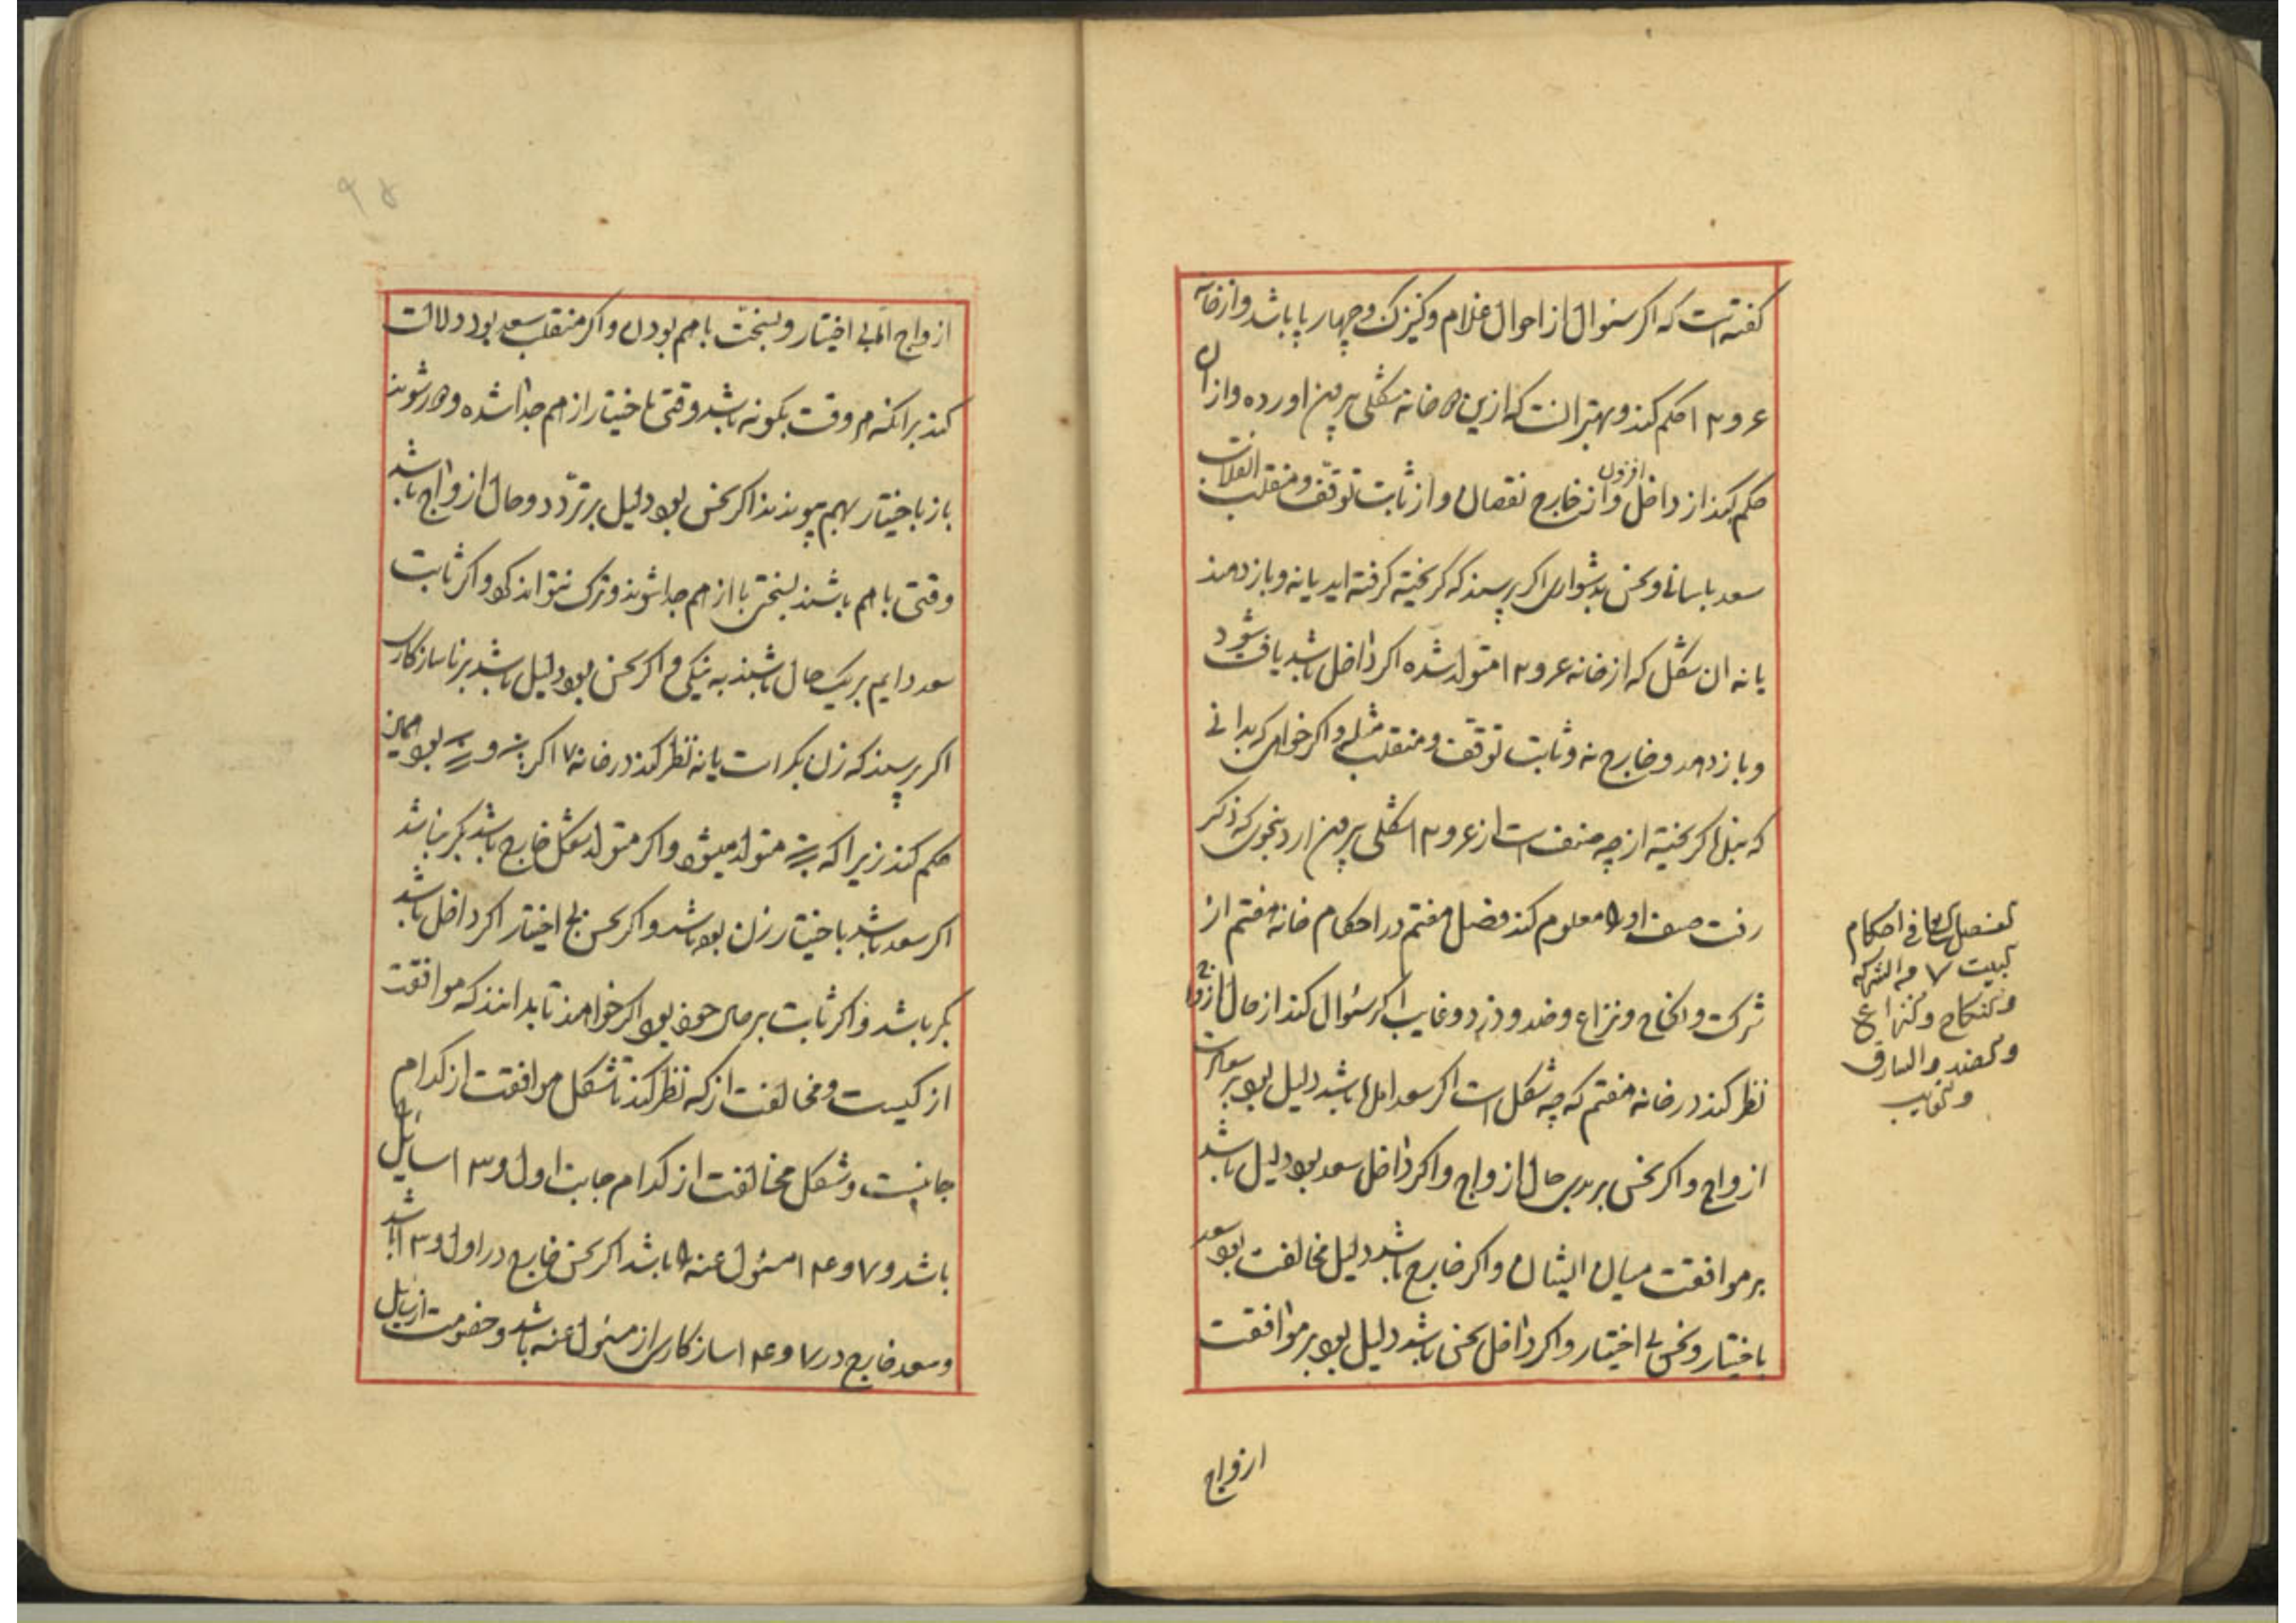 گفته است که اکر سئوال از احوال غلام و کنیزک و چهارپا باشد و از خانه
۶ و ۱۲ حکم کند و بهتر انست که ازین ۲ خانه شکلی بیرون اورده و از ان
حکم کند از داخل افزون و از خارج نقصان و از ثابت توقف و منقلب انقلاب
سعد باسانی و نحس بدشواری اکر پرسند که کریخته کرفته اید یا نه و باز دهند
یا نه ان شکل که از خانه ۶ و ۱۲ متولد شده اکر داخل باشد یافت شود
و باز دهد و خارج نه و ثابت توقف و منقلب مثله و اکر خواهی که بدانی
که بنده کریخته از چه صنف است از ۶ و ۱۲ شکلی بیرون ارد بنحوی که ذکر
رفت صنف او را معلوم کند فصل هفتم در احکام خانه هفتم از
شرکت و نکاح و نزاع و ضد و دزد و غایب اکر سئوال کند از حال ازواج
نظر کند در خانه هفتم که چه شکل است اکر سعد باشد دلیل بود بر
ازواج و اکر نحس بر بدی حال ازواج و اکر داخل سعد بود دلیل باشد
بر موافقت میان ایشان و اکر خارج باشد دلیل مخالفت بود سعد
باختیار و نحس بی اختیار و اکر داخل نحس باشد دلیل بود بر موافقت
ازواج
الفصل السابع فی احکام
البیت ۷ من الشرکه
والنکاح والنزاع
والضد والسارق
والغایب
۹۵
ازواج اما بی اختیار و بسختی با هم بودن و اکر منقلب سعد بود دلالت
کند بر انکه هر وقت بکونه باشد وقتی باختیار از هم جدا شده و دور شوند
باز باختیار بهم پیوندند اکر نحس بود دلیل بر تردد و حال ازواج باشد
وقتی با هم باشند بسختی یا از هم جدا شوند و ترک نتواند کرد و اکر ثابت
سعد دایم بر یک حال باشند به نیکی و اکر نحس بود دلیل باشد بر ناسازکاری
اکر پرسند که زن بکر است یا نه نظر کند در خانه ۷ اکر و بود همان
حکم کند زیرا که متولد میشود و اکر متولد شکل خارج باشد بکر نباشد
اکر سعد باشد باختیار زن بوده باشد و اکر نحس بی اختیار اکر داخل باشد
بکر باشد و اکر ثابت بر حال خود بود اکر خواهند تا بدانند که موافقت
از کیست و مخالفت از که نظر کند تا شکل موافقت از کدام
جانبست و شکل مخالفت از کدام جانب اول و ۱۳ سایل
باشد و ۷ و ۱۴ مسئول عنه را باشد اکر نحس خارج در اول و ۱۳ باشد
و سعد خارج در ۷ و ۱۴ سازکاری از مسئول عنه باشد و خصومت از سایل